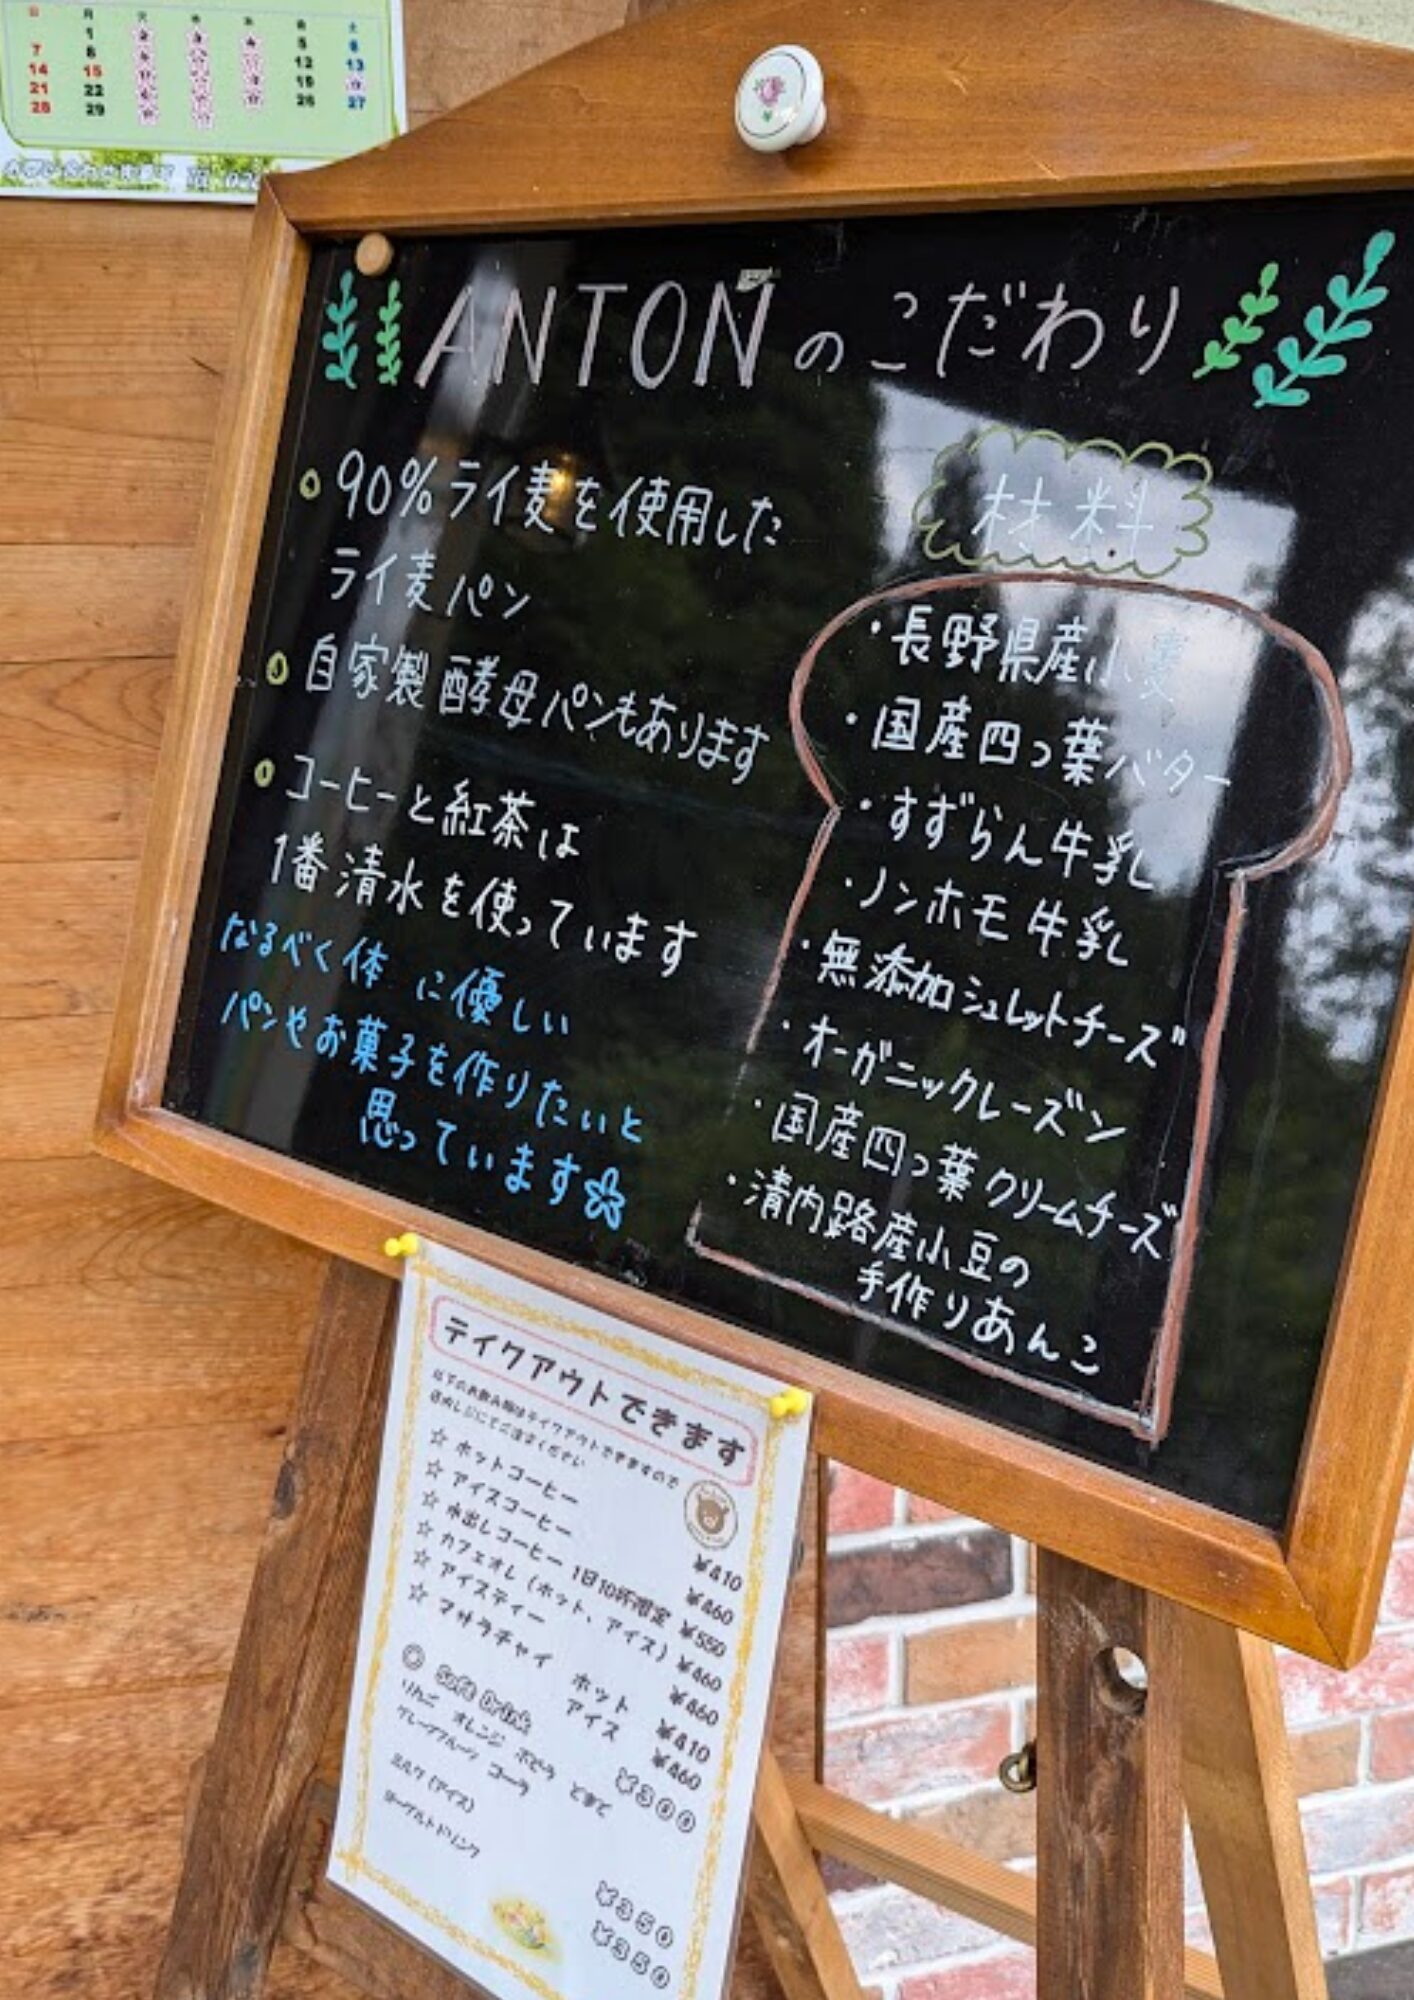 日 月 火 水 木 金 土
1 2 3 4 5 6
7 8 12 13
14 15 19
21 22 26 27
28 29
ANTONのこだわり
90%ライ麦を使用した
ライ麦パン
自家製酵母パンもあります
コーヒーと紅茶は
1番清水を使っています
なるべく体に優しい
パンやお菓子を作りたいと
思っています
材料
・長野県産小麦
・国産四つ葉バター
・すずらん牛乳
・ノンホモ牛乳
・無添加シュレットチーズ
・オーガニックレーズン
・国産四つ葉クリームチーズ
・清内路産小豆の
手作りあんこ
テイクアウトできます
以下のお飲み物はテイクアウトできますので
店内レジにてご注文ください
☆ ホットコーヒー ¥410
☆ アイスコーヒー ¥460
☆ 水出しコーヒー 1日10杯限定 ¥550
☆ カフェオレ(ホット、アイス) ¥460
☆ アイスティー ¥460
☆ マサラチャイ ホット ¥410
アイス ¥460
◎ Soft Drink ¥300
りんご オレンジ ポピーラ とまと
グレープフルーツ コーラ
ミルク(アイス) ¥350
ヨーグルトドリンク ¥350